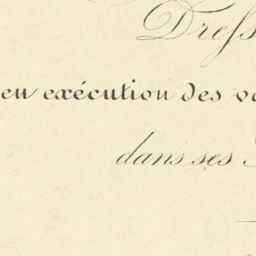 Dress
en exécution des vo
dans ses